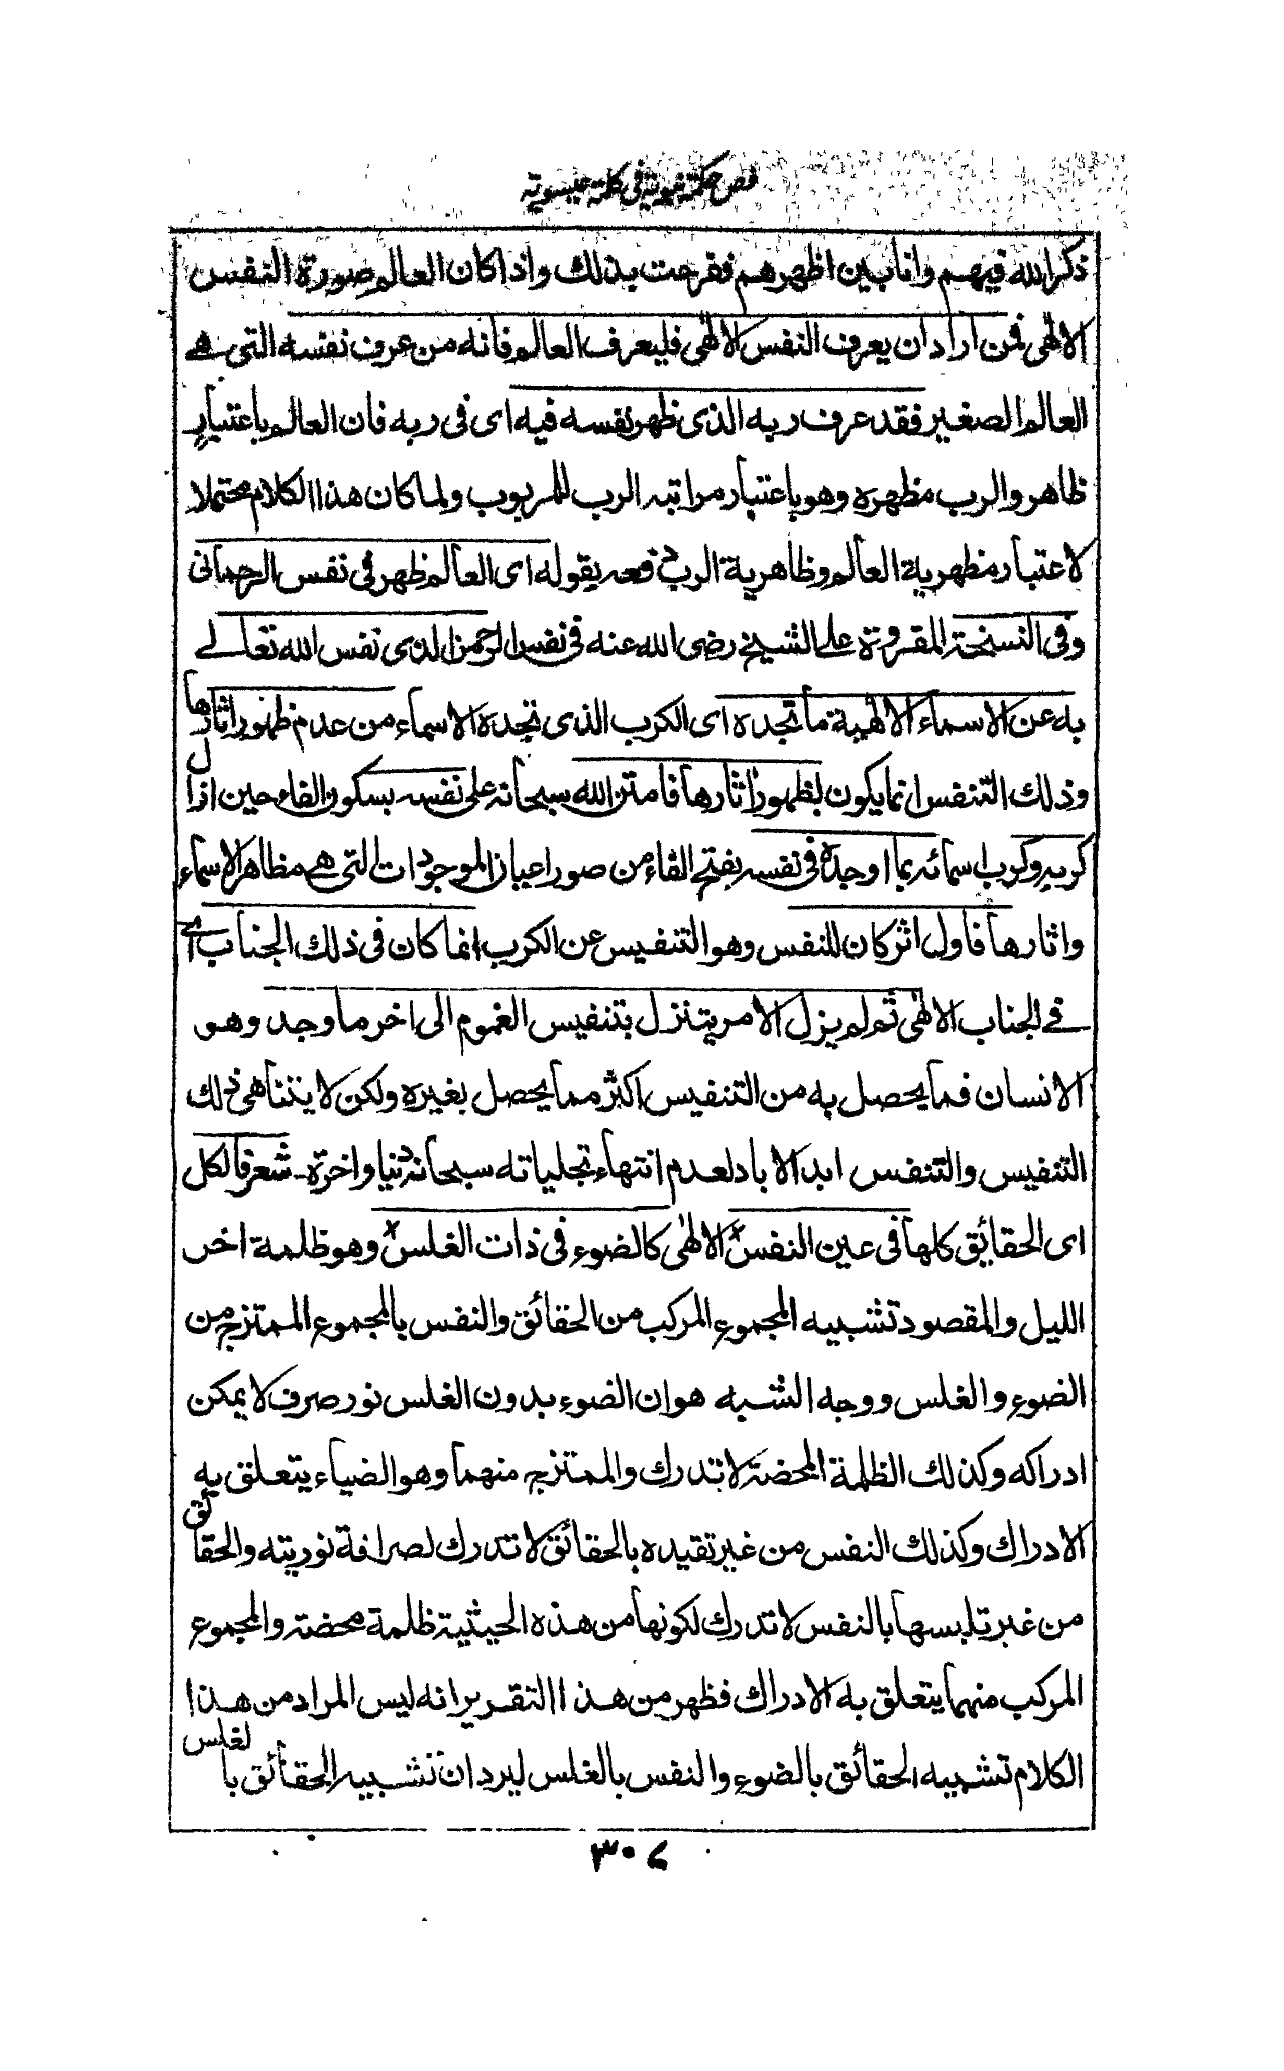 فص حكمة نبوية في كلمة عيسوية
ذكر الله فيهم وانا بين اظهرهم ففرحت بذلك واذا كان العالم صورة النفس
الالهى فمن اراد ان يعرف النفس الالهى فليعرف العالم فانه من عرف نفسه التى هے
العالم الصغير فقد عرف ربه الذى ظهر نفسه فيه اى فى ربه فان العالم باعتبار
ظاهر والرب مظهره وهو باعتبار مراتبه الرب للمربوب ولما كان هذا الكلام محتملا
لاعتبار مظهرية العالم وظاهرية الرب دفعه بقوله اى العالم ظهر فى نفس الرحمانى
وفى النسخة المقروة على الشيخ رضى الله عنه فى نفس الرحمن الذى نفس الله تعالے
به عن الاسماء الالهية ما تجده اى الكرب الذى تجده الاسماء من عدم ظهور اثارها
وذلك التنفس انما يكون بظهور اثارها فامتن الله سبحانه على نفسه بسكون الفاء حين ازال
كربه وكرب اسمائه بما اوجده فى نفسه بفتح الفاء من صور اعيان الموجودات التى هے مظاهر الاسماء
واثارها فاول اثر كان للنفس وهو التنفيس عن الكرب انما كان فى ذلك الجناب اے
فے الجناب الالهى ثم لم يزل الامر يتنزل بتنفيس الغموم الى اخر ما وجد وهو
الانسان فما يحصل به من التنفيس اكثر مما يحصل بغيره ولكن لا يتناهى ذلك
التنفيس والتنفس ابد الاباد لعدم انتهاء تجلياته سبحانه دنيا واخرة شعر فالكل
اى الحقائق كلها فى عين النفس الالهى كالضوء فى ذات الغلس وهو ظلمة اخر
الليل والمقصود تشبيه المجموع المركب من الحقائق والنفس بالمجموع الممتزج من
الضوء والغلس ووجه الشبه هو ان الضوء بدون الغلس نور صرف لا يمكن
ادراكه وكذلك الظلمة المحضة لا تدرك والممتزج منهما وهو الضياء يتعلق به
الادراك وكذلك النفس من غير تقيده بالحقائق لا تدرك لصرافة نوريته والحقائق
من غير تلبسها بالنفس لا تدرك لكونها من هذه الحيثية ظلمة محضة والمجموع
المركب منهما يتعلق به الادراك فظهر من هذا التقرير انه ليس المراد من هذا
الكلام تشبيه الحقائق بالضوء والنفس بالغلس ليرد ان تشبيه الحقائق بالغلس
٣٠٧